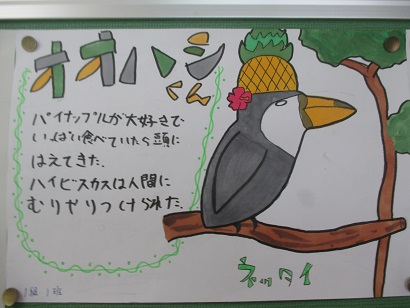 オオハシくん
パイナップルが大好きで
いっぱい食べていたら頭に
はえてきた。
ハイビスカスは人間に
むりやりつけられた。
ネッタイ